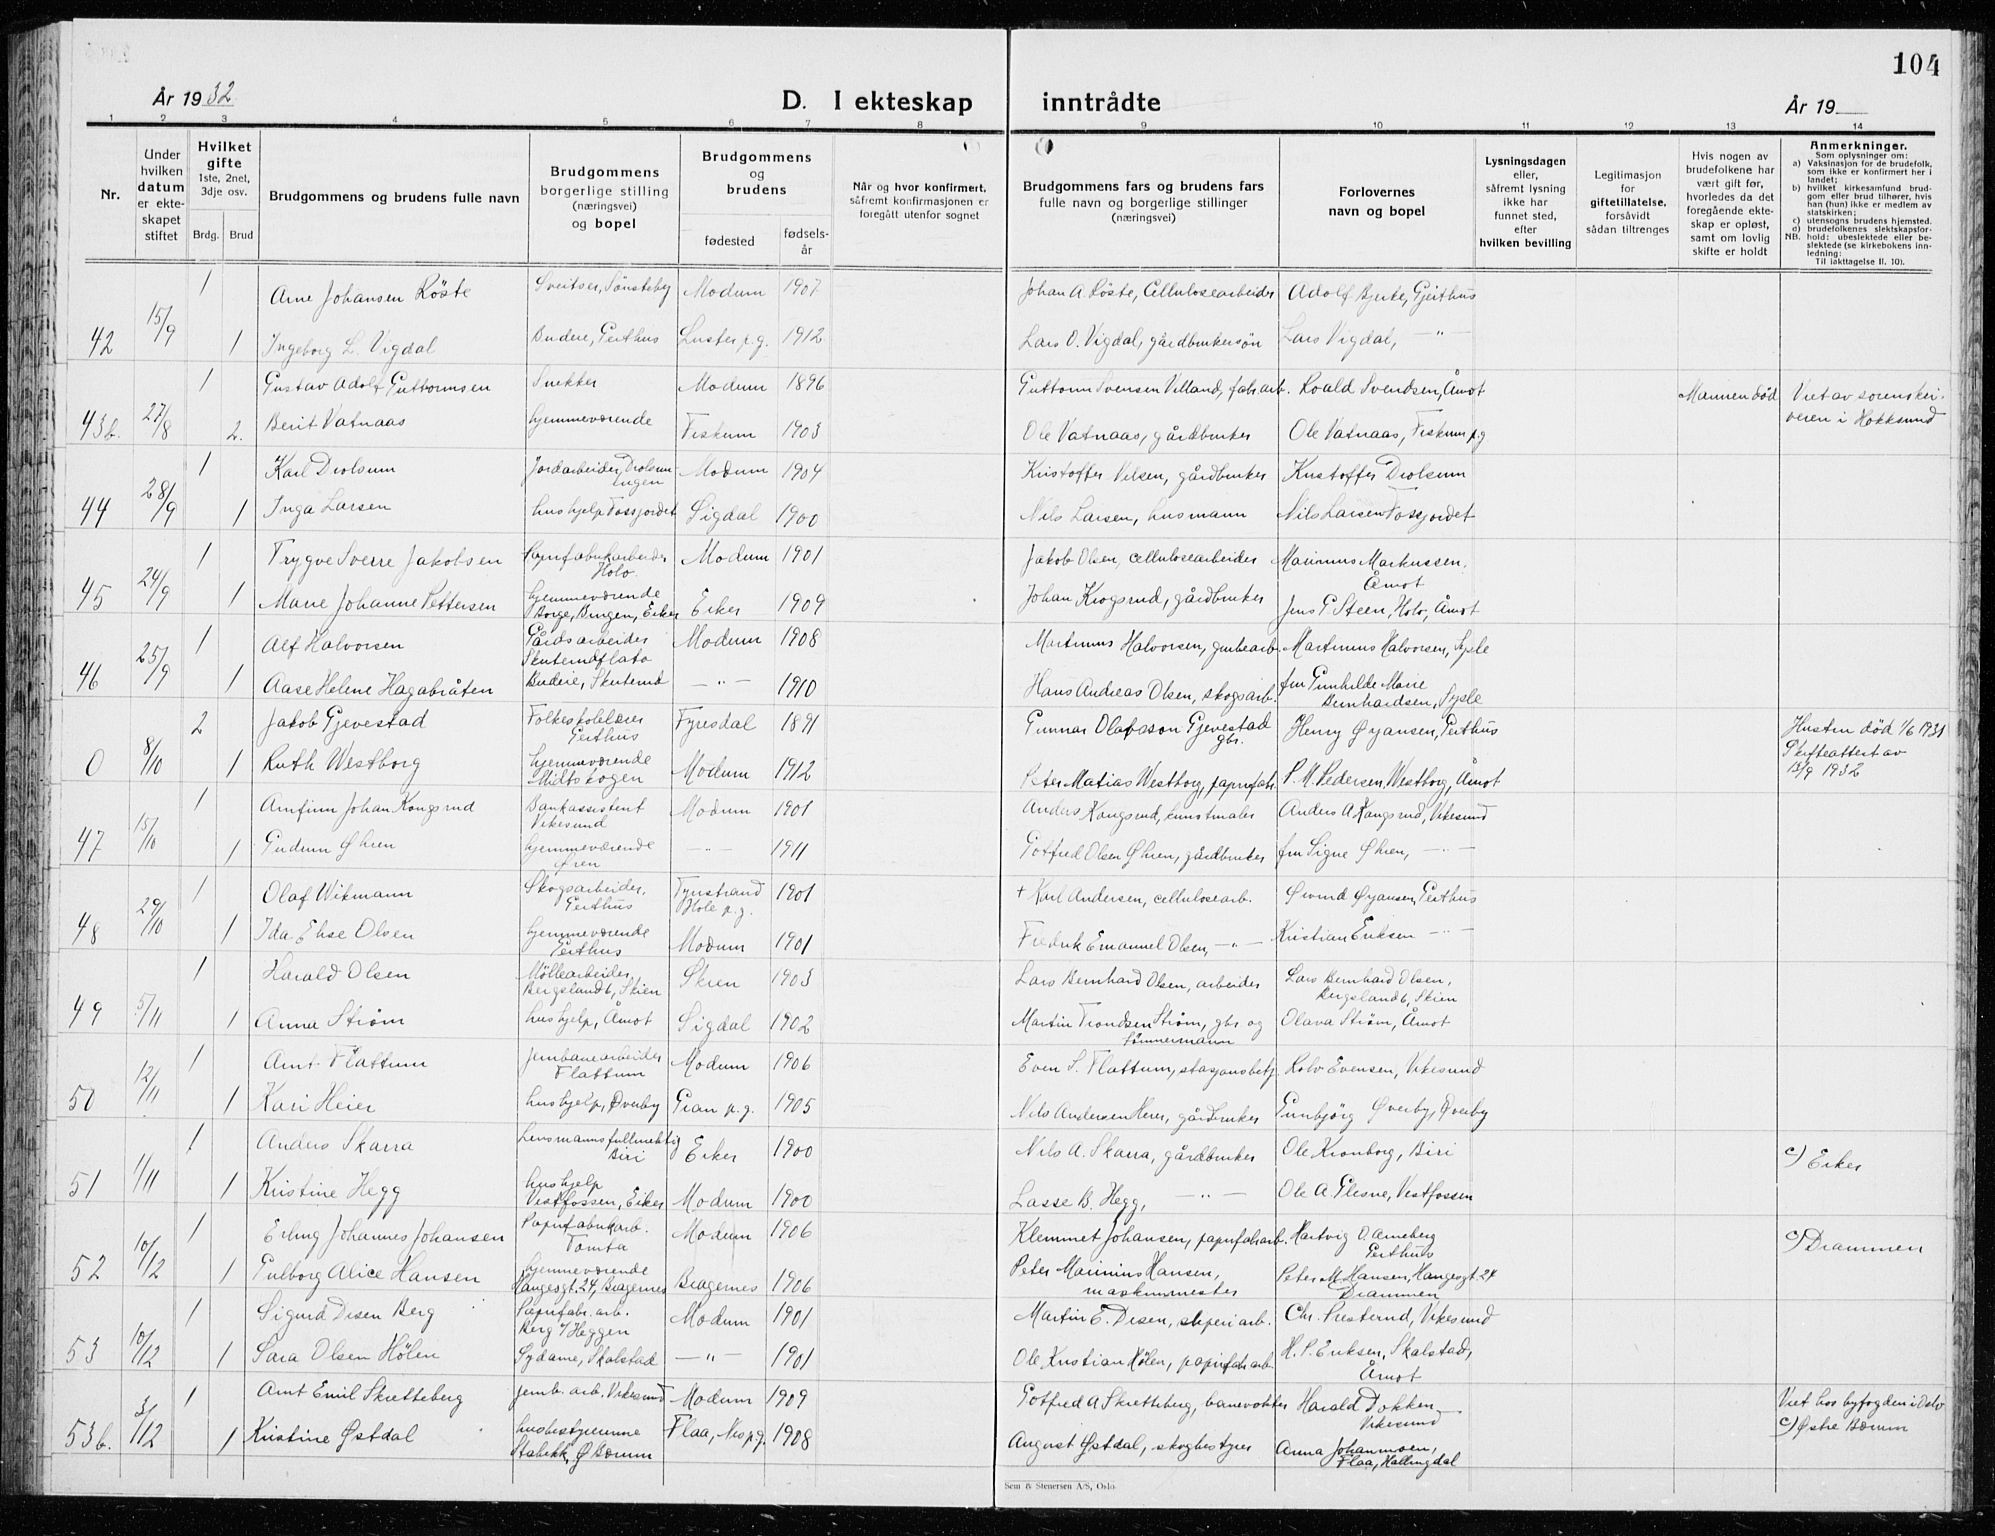 104
År 1932
D. I ekteskap inntrådte
År 19
1 2 3 4 5 6 7 8 9 10 11 12 13 14
Nr.
Under hvilken datum er ekteskapet stiftet
Hvilket gifte
1ste, 2net, 3dje osv.
Brdg. Brud
Brudgommens og brudens fulle navn
Brudgommens borgerlige stilling (næringsvei) og bopel
Brudgommens og brudens
fødested
fødselsår
Når og hvor konfirmert, såfremt konfirmasjonen er foregått utenfor sognet
Brudgommens fars og brudens fars fulle navn og borgerlige stillinger (næringsvei)
Forlovernes navn og bopel
Lysningsdagen eller, såfremt lysning ikke har funnet sted, efter hvilken bevilling
Legitimasjon for giftetillatelse, forsåvidt sådan tiltrenges
Hvis nogen av brudefolkene har vært gift før, hvorledes da det foregående ekteskap er opløst, samt om lovlig skifte er holdt
Anmerkninger.
Som oplysninger om:
a) Vaksinasjon for de brudefolk, som ikke er konfirmert her i landet;
b) hvilket kirkesamfund brudgom eller brud tilhører, hvis han (hun) ikke er medlem av statskirken;
c) utensogns brudens hjemsted.
d) brudefolkenes slektskapsforhold: ubeslektede eller beslektede (se kirkebokens innledning:
NB.
Til iakttagelse II. 10).
1 Arne Johansen Röste Sveitser, Sønsteby Modum 1907 Johan A. Röste, Cellulosearbeider Adolf Bjerke, Gjeithus
42 15/9 1 Ingeborg L. Vigdal Budeie, Geithus Luster p.g. 1912 Lars O. Vigdal, gårdbrukersön Lars Vigdal, —"—
1 Gustav Adolf Guttormsen Snekker Modum 1896 Guttorm Svensen Villand, fabr.arb. Roald Svendsen, Åmot Mannen död Viet av sorenskriveren i Hokksund
43b. 27/8 2. Berit Vatnaas hjemmeværende Fiskum 1903 Ole Vatnaas, gårdbruker Ole Vatnaas, Fiskum p.g
1 Karl Drolsum Jordarbeider, Drolsum-engen Modum 1904 Kristoffer Nilsen, gårdbruker Kristoffer Drolsum
44 28/9 1 Inga Larsen hushjelp Fossjordet Sigdal 1900 Nils Larsen, husmann Nils Larsen Fossjordet
1 Trygve Sverre Jakobsen Papirfabrikarbeider Holo Modum 1901 Jakob Olsen, cellulosearbeider Marinius Markussen, Åmot
45 24/9 1 Marie Johanne Pettersen hjemmeværende Borge, Bingen, Eiker Eiker 1909 Johan Krogsrud, gårdbruker Jens G Steen, Holo, Åmot
1 Alf Halvorsen Gårdsarbeider Skuterudflata Modum 1908 Martinius Halvorsen, grubearb. Martinius Halvorsen, Sysle
46 25/9 1 Aase Helene Hagabråten Budeie, Skuterud —"— 1910 Hans Andreas Olsen, skogsarb. fru Gunhilde Marie Bernhardsen, Sysle
2 Jakob Gjevestad Folkeskolelærer Geithus Fyresdal 1891 Gunnar Olafsson Gjevestad gbr. Henry Øyansen, Geithus Hustru död 1/6 1931 Skifteattest av 13/9 1932
0 8/10 1 Ruth Westborg hjemmeværende Midtskogen Modum 1912 Peter Matias Westborg, papirfabr. P. M. Pedersen Westborg, Åmot
1 Arnfinn Johan Kongsrud Bankassistent Vikesund Modum 1901 Anders Kongsrud, kunstmaler Anders A Kongsrud, Vikesund
47 15/10 1 Gudrun Øhren hjemmeværende Øren —"— 1911 Gotfred Olsen Øhren, gårdbruker fru Signe Øhren, —"—
1 Olaf Wikmann Skogsarbeider, Geithus Tyristrand Hole p.g. 1901 + Karl Andersen, cellulosearb. Øivind Øyansen, Geithus
48 29/10 1 Ida Elise Olsen hjemmeværende Geithus Modum 1901 Fredrik Emanuel Olsen, —"— Kristian Eriksen —"—
1 Harald Olsen Möllearbeider, Bergslandt, Skien Skien 1903 Lars Bernhard Olsen, arbeider Lars Bernhard Olsen, Bergslandt, Skien
49 5/11 1 Anna Ström hushjelp, Åmot Sigdal 1902 Martin Trondsen Strøm, gbr og tömmermann Olava Ström, Åmot
1 Arnt Flattum Jernbanearbeider Flattum Modum 1906 Even S. Flattum, stasjonsbetj. Rolv Evensen, Vikesund
50 12/11 1 Kari Heier hushjelp, Øverby Gran p.g. 1905 Nils Andersen Heier, gårdbruker Gunbjörg Øverby, Øverby
1 Anders Skarra Lensmannsfullmektig Biri Eiker 1900 Nils A. Skarra, gårdbruker Ole Kronborg, Biri c) Eiker
51 1/11 1 Kristine Hegg hushjelp Vestfossen, Eiker Modum 1900 Lasse B. Hegg, —"— Ole A. Plesne, Vestfossen
1 Erling Johannes Johansen Papirfabrikarb. Tomta Modum 1906 Klemmet Johansen, papirfabrarb. Hartvig O. Arneberg Geithus c) Drammen
52 10/12 1 Gulborg Alice Hansen hjemmeværende Haugesgt. 24, Bragernes Bragernes 1906 Peter Marinius Hansen, maskinmester Peter M. Hansen, Haugesgt. 24 Drammen
1 Sigurd Disen Berg Papirfabr. arb. Berg v/ Heggen Modum 1901 Martin E. Disen, sliperiarb. Chr. Presterud, Vikesund
53 10/12 1 Sara Olsen Hölen Sydame, Skalstad —"— 1901 Ole Kristian Hölen, papirfabrarb. H. P. Eriksen, Skalstad, Åmot
1 Arnt Emil Skretteberg jernb. arb. Vikesund Modum 1909 Gotfred A Skretteberg, banevokter Harald Dokken Vikesund Viet hos byfogden i Oslo
53b. 3/12 1 Kristine Østdal husbestyrerinne Stabekk, Ø Bærum Flaa, Nes p.g. 1908 August Østdal, skogbestyrer Anna Johannsen, Flaa, Hallingdal c) Østre Bærum
Sem & Stenersen A/S, Oslo